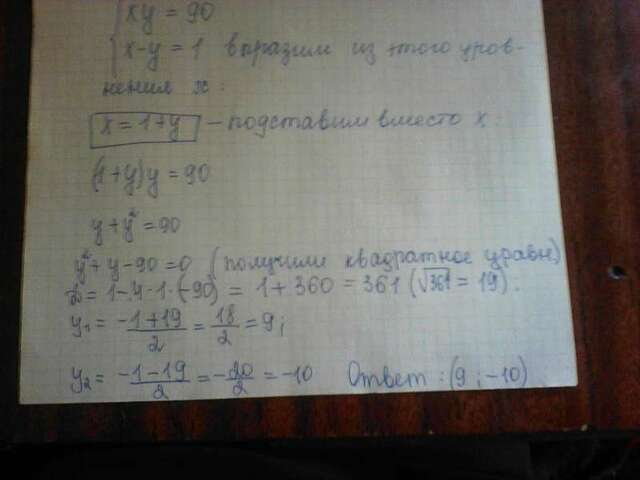 xy = 90
x-y = 1 выразим из этого урав-
нения x:
x = 1+y — подставим вместо x:
(1+y)y = 90
y+y² = 90
y²+y-90=0 (получили квадратное уравн.)
D = 1-4·1·(-90) = 1+360 = 361 (√361 = 19).
y₁ = -1+19/2 = 18/2 = 9;
y₂ = -1-19/2 = -20/2 = -10 Ответ: (9; -10)